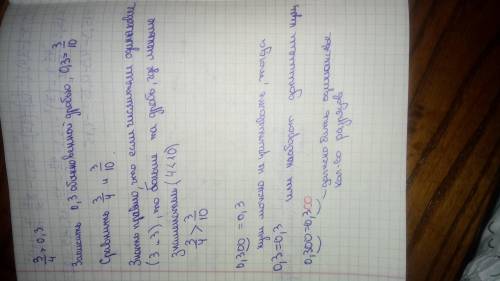 3/4 > 0,3.
Записать 0,3 обыкновенной дробью, 0,3 = 3/10
Сравнить 3/4 и 3/10.
Знать правило, что если числители одинаковы
(3 = 3), то больше та дробь, где меньше
знаменатель (4 < 10)
3/4 > 3/10
0,300 = 0,3
нули можно не учитывать, тогда
0,3 = 0,3 или наоборот допишем нули
0,300 = 0,300 – должно быть одинаковое
кол-во разрядов